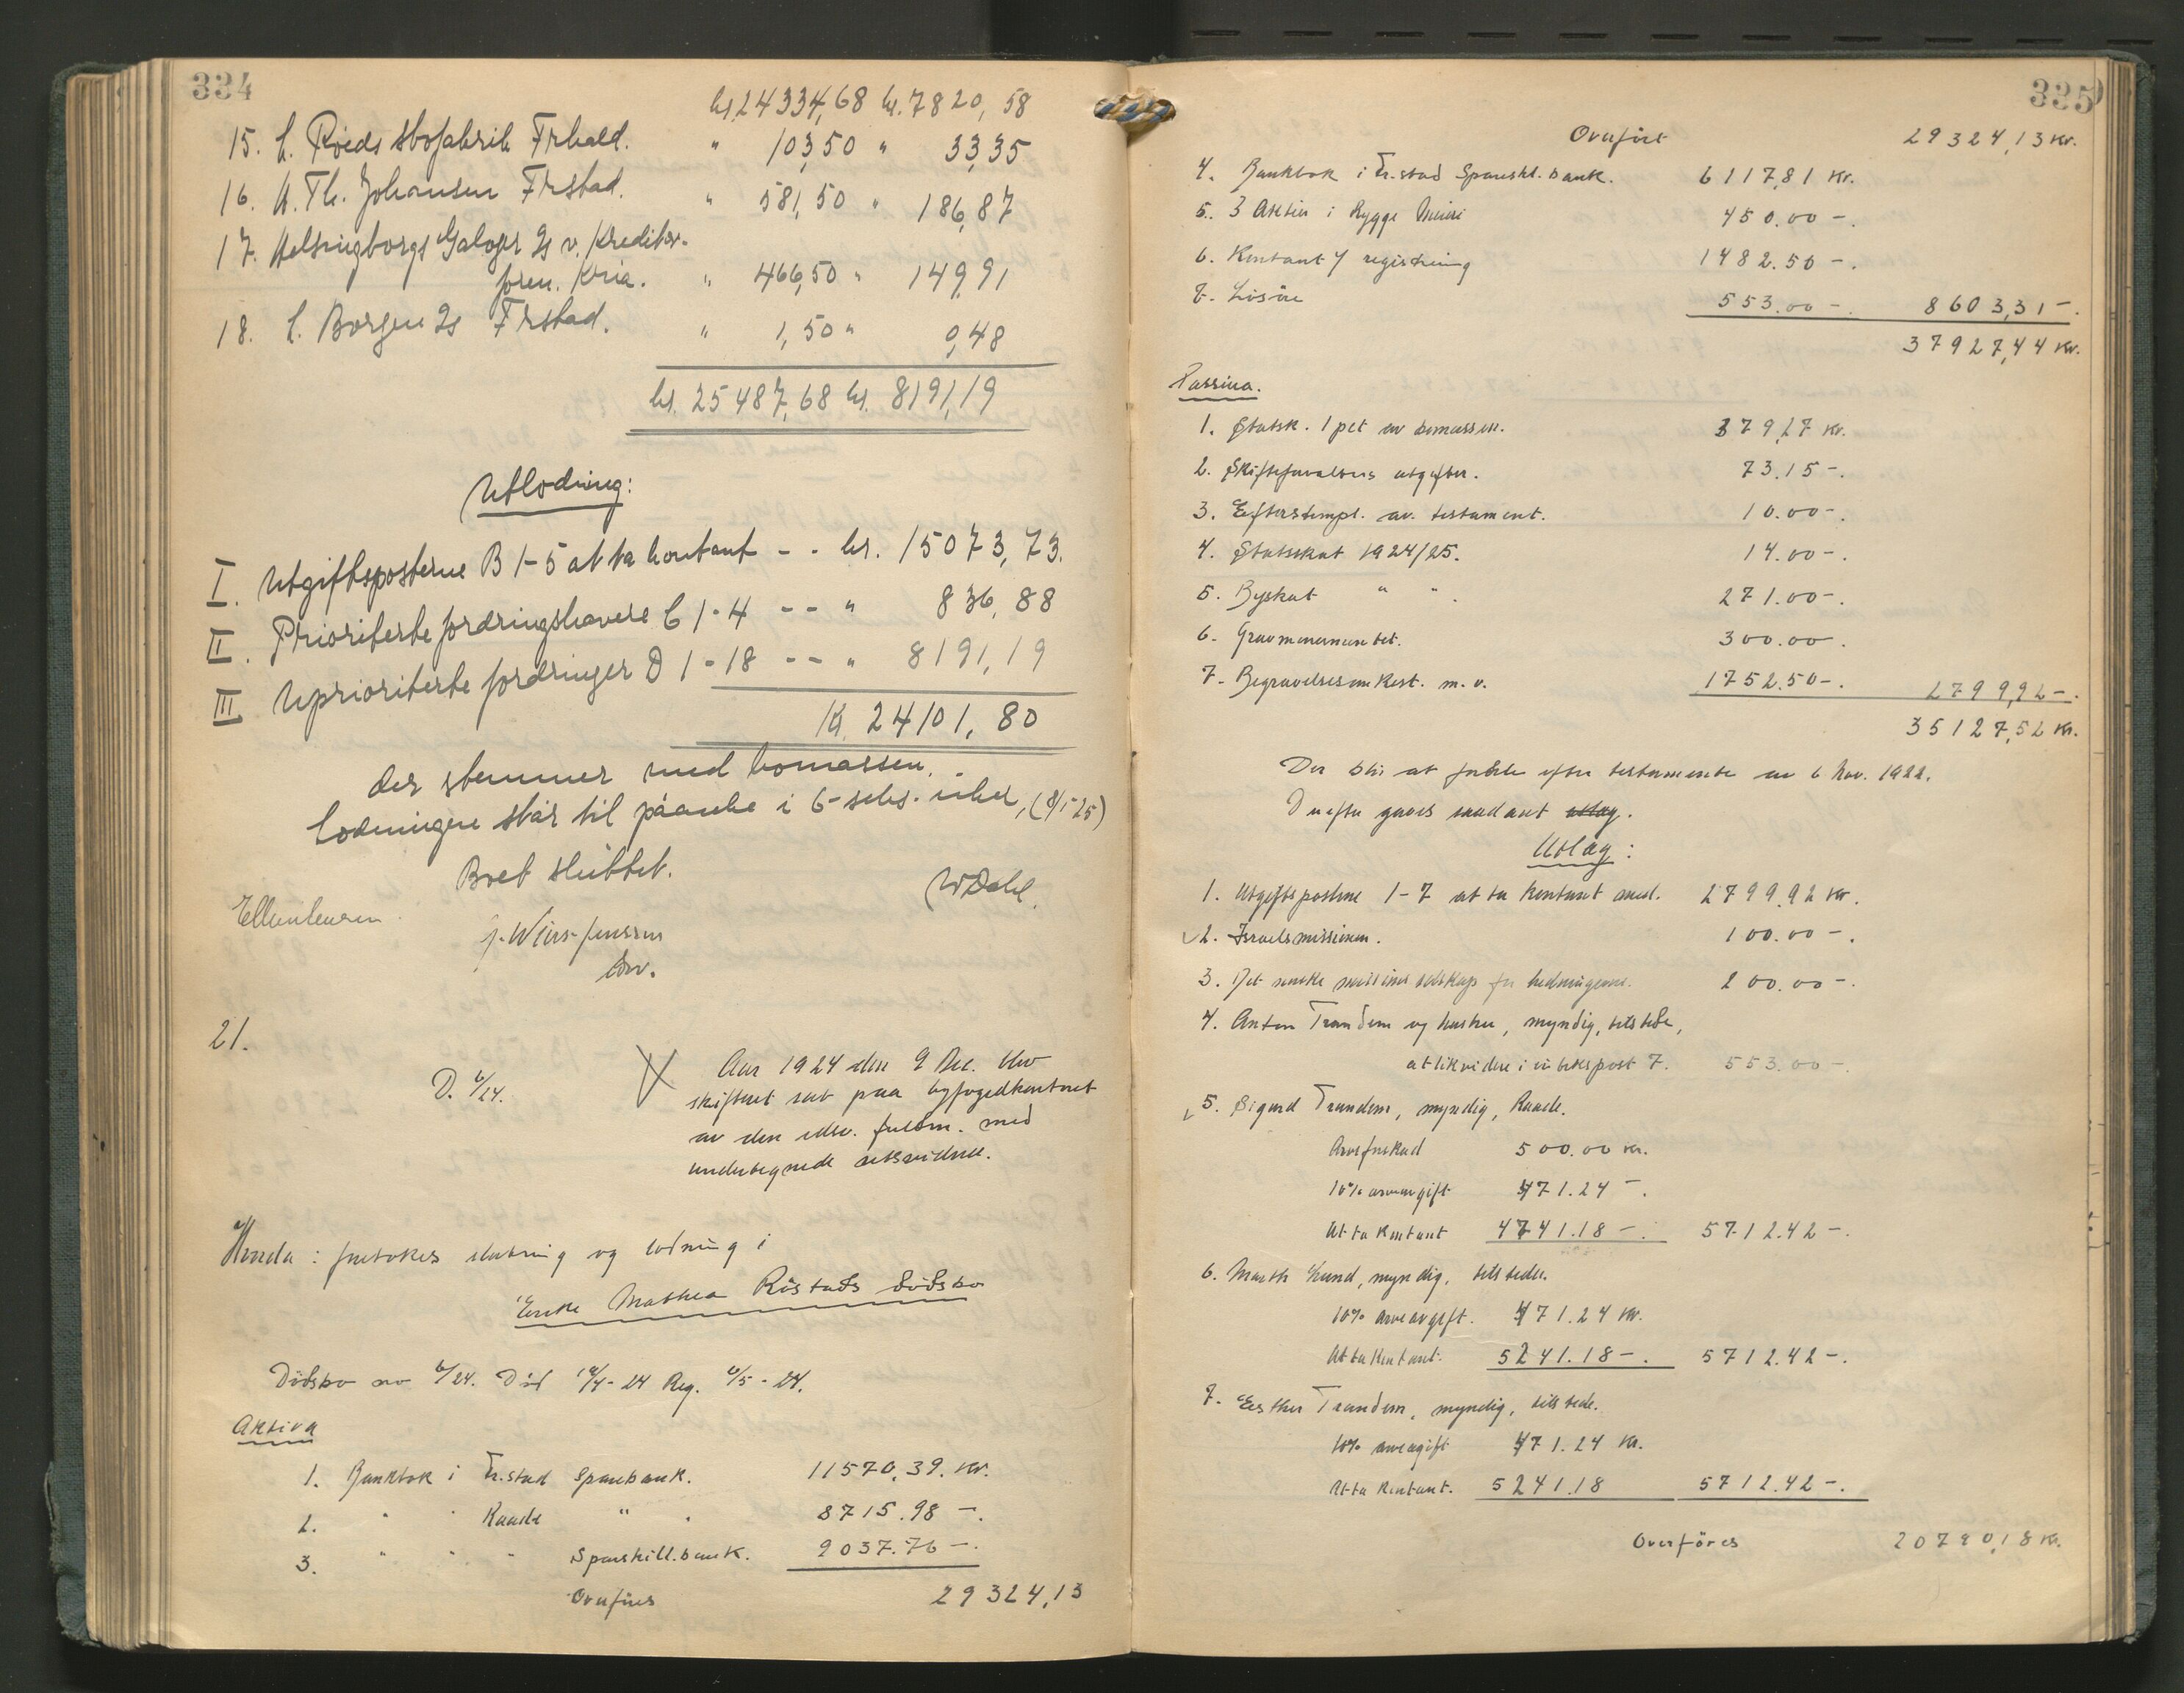 334
kr. 24334,68 kr. 7820,58
15. C. Röeds skofabrik Frhald. " 103,50 " 33,35
16. A. Th. Johansen Frstad. " 581,50 " 186,87
17. Helsingborgs Galoger 2s v. Kreditor-
foren. Kria. " 466,50 " 149,91
18. C. Borgen 2s Frstad. " 1,50 " 0,48
kr. 25487,68 kr. 8191,19
Utlodning:
I. Utgiftsposterne B 1-5 at ta kontant - - kr. 15073,73.
II. Prioriterte fordringshavere C 1-4 - - " 836,88
III Uprioriterte fordringer D 1-18 - - " 8191,19
Kr. 24101,80
der stemmer med bomassen.
Lodningen står til påanke i 6-seks-uker, (8/1-25)
Boet sluttet.
WDahl.
J. Wiers-Jenssen
21.
D. 6/24.
Aar 1924 den 9 Dec. blev
skifteret sat paa byfogedkontoret
av den edsv. fuldm. med
undertegnede retsvidne.
Hvorda: foretokes slutning og lodning i
Enke Mathea Ristads dödsbo
Dödsbo no 6/24. Död 14/4-24 Reg. 6/5-24.
Aktiva
1. Bankbok i Fr.stad Sparebank. 11570,39. Kr.
2. " " Raade " " 8715.98 -.
3. " " " Spareskill.bank. 9037.76 -.
Overføres 29324,13
335
Overført 29324,13 Kr.
4. Bankbok i Fr.stad Spareskl.bank. 6117,81 Kr.
5. 3 Aktier i Rygge Meieri 450.00 -.
6. Kontant v/ registrering 1482.50 -.
7. Lösöre 553.00 -. 8603,31 -.
37927,44 Kr.
Passiva.
1. Statsk. 1 pct av bomassen. 379,27 Kr.
2. Skifteforvalterens utgifter. 73.15 -.
3. Efterstempl. av testament. 10.00 -.
4. Statsskat 1924/25. 14.00 -.
5. Byskat " " . 271.00 -.
6. Gravmonumentet. 300.00 .
7. Begravelsesomkost. m.v. 1752.50 -. 2799,92 -.
35127,52 Kr.
Der blir at fordele efter testamente av 6 Nov. 1922.
Derefter gjøres saadant utlag.
Utlæg:
1. Utgiftspostene 1-7 at ta kontant med. 2799.92 Kr.
2. Israelsmissionen. 100.00 -.
3. Det norske missionsselskap for hedningerne. 200.00 -.
4. Anton Trandem og hustru, myndig, tilstede,
at likvidere i indtektspost 7. 553.00 -.
5. Sigurd Trandem, myndig, Raade.
Arveforskud 500.00 Kr.
10% arveavgift 471.24 -.
At ta kontant 4741.18 -. 5712.42 -.
6. Marth Lund, myndig, tilstede.
10% arveavgift. 471.24 Kr.
At ta kontant. 5241.18 -. 5712.42 -.
7. Esther Trandem, myndig, tilstede.
10% arveavgift 471.24 Kr.
At ta kontant. 5241.18 5712.42 -.
Overföres 20790,18 Kr.